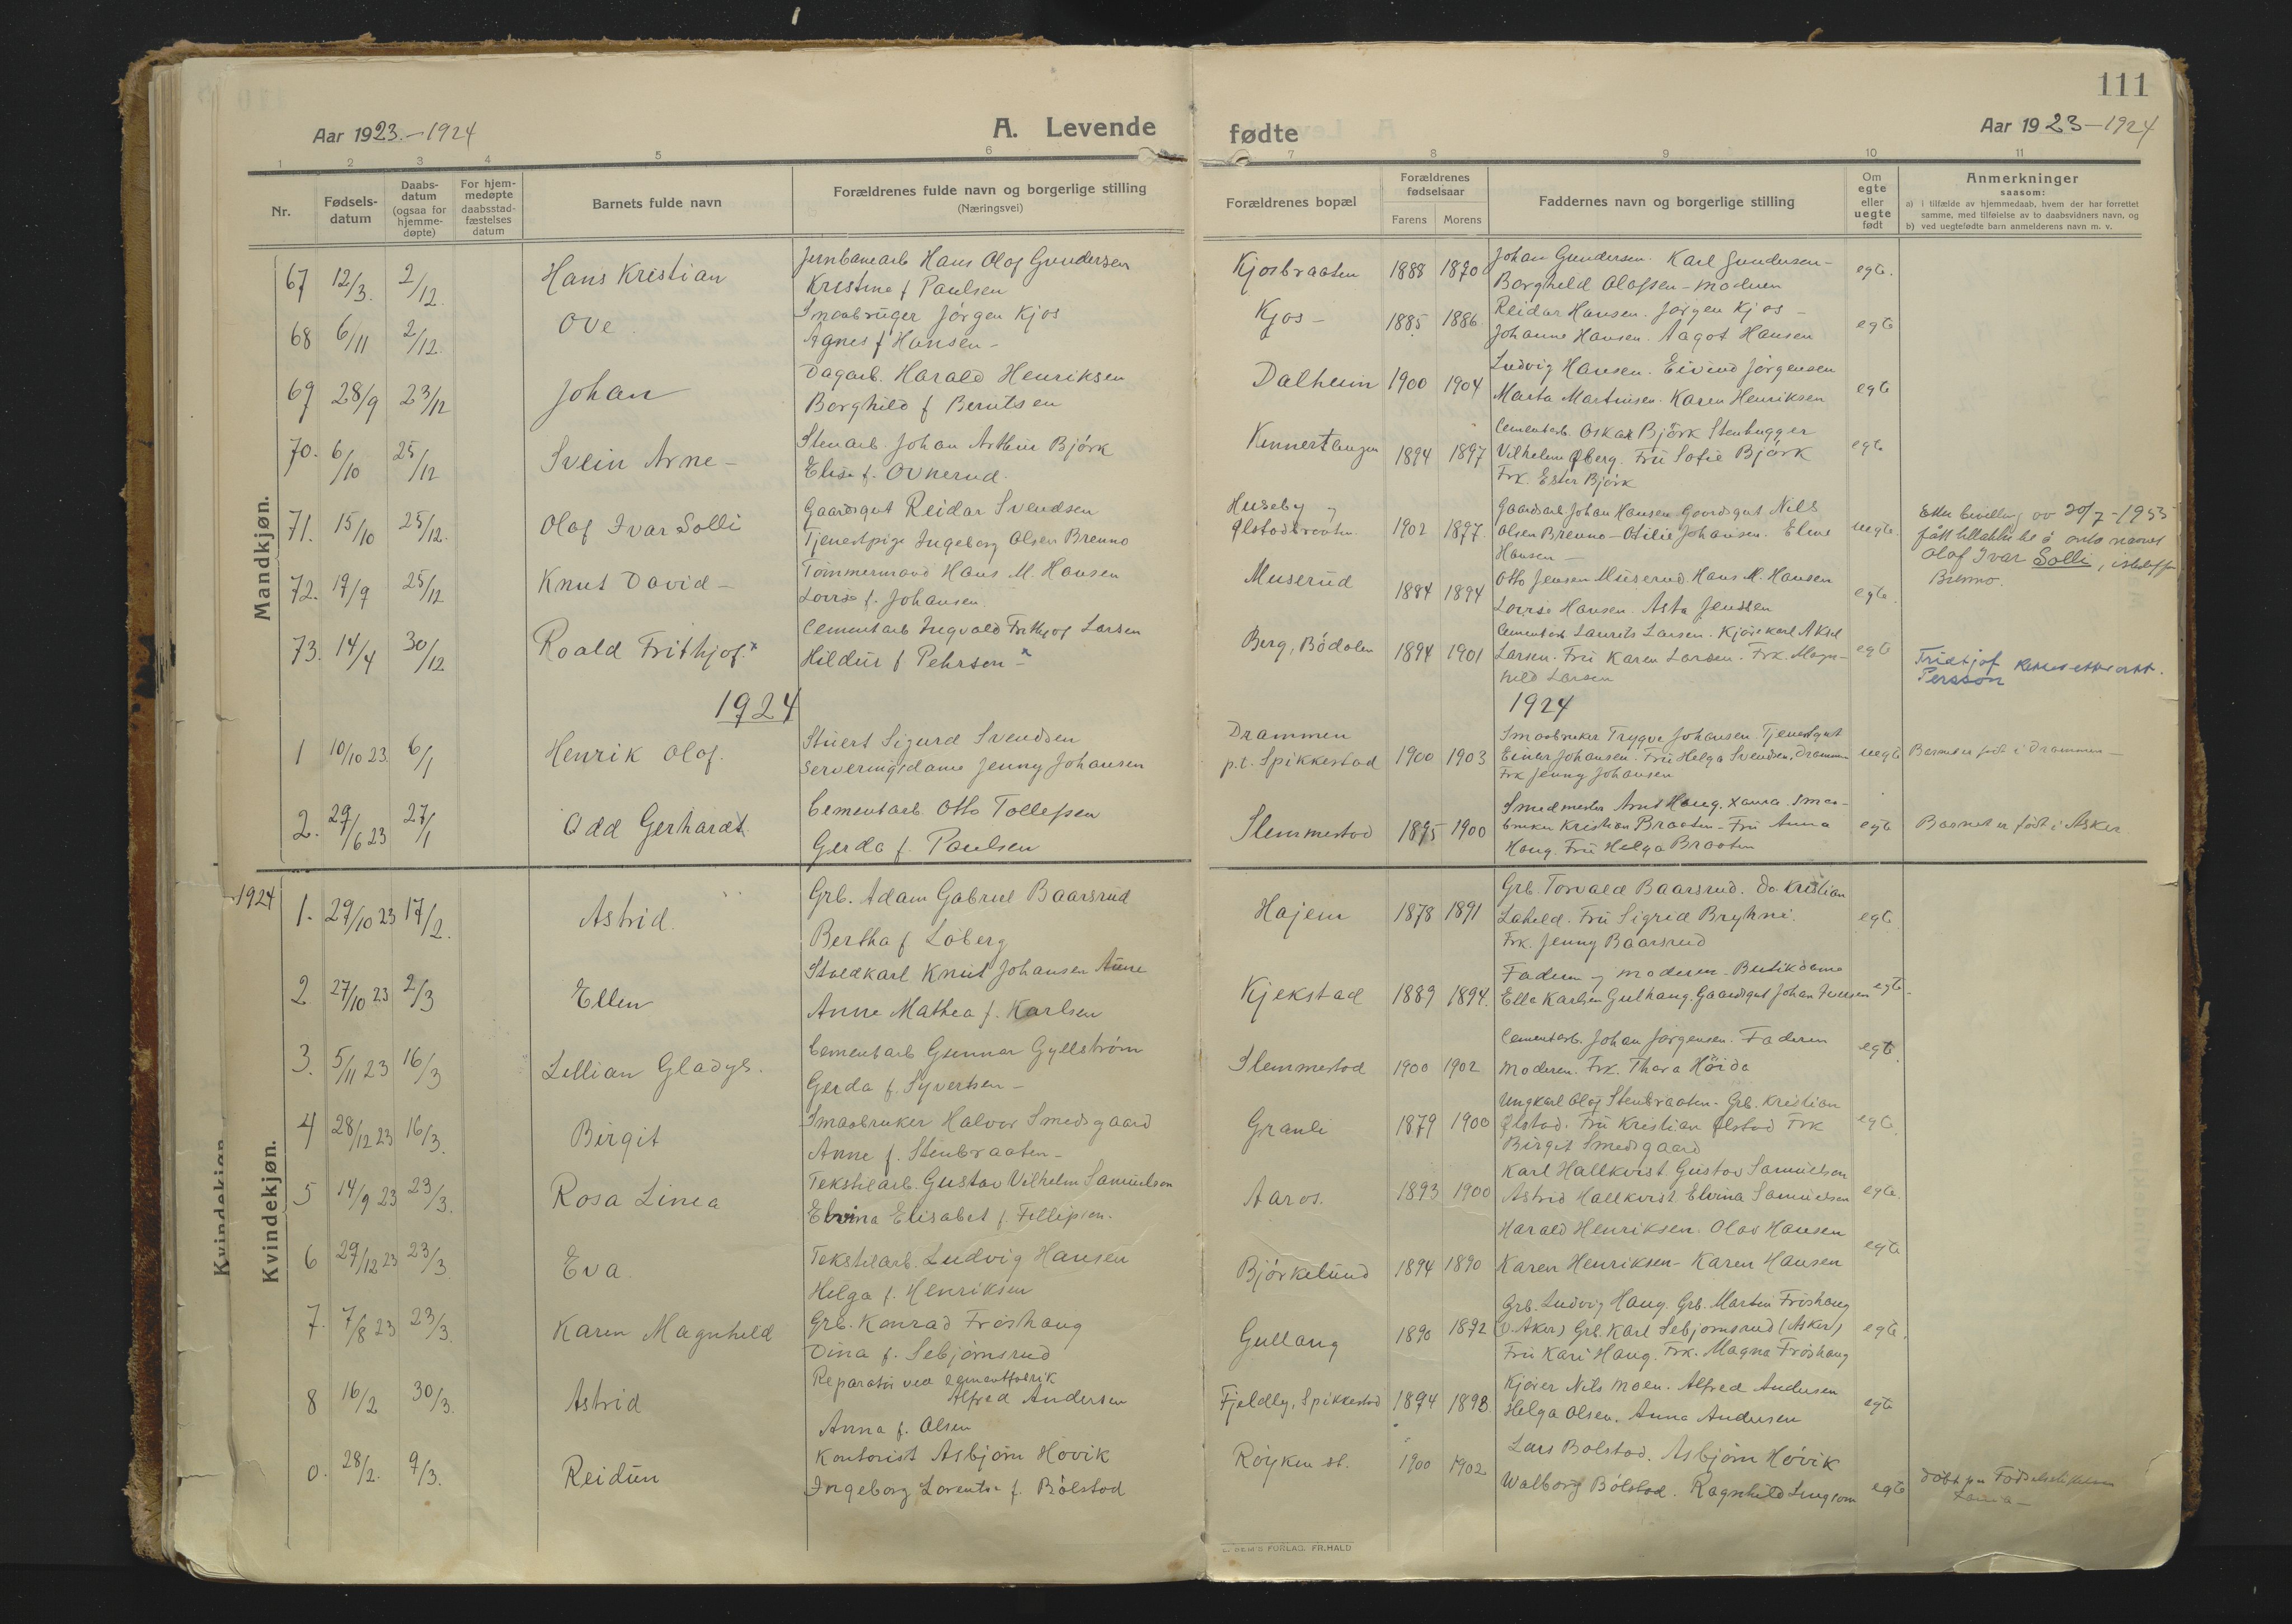 111
Aar 1923.-1924
A. Levende
fødte
Aar 1923-1924
1 2 3 4 5 6 7 8 9 10 11
Nr.
Fødsels-
datum
Daabs-
datum
(ogsaa for
hjemme-
døpte)
For hjem-
medøpte
daabsstad-
fæstelses
datum
Barnets fulde navn
Forældrenes fulde navn og borgerlige stilling
(Næringsvei)
Forældrenes bopæl
Forældrenes
fødselsaar
Farens Morens
Faddernes navn og borgerlige stilling
Om
egte
eller
uegte
født
Anmerkninger
saasom:
a) i tilfælde av hjemmedaab, hvem der har forrettet
samme, med tilføielse av to daabsvidners navn, og
b) ved uegtefødte barn anmelderens navn m. v.
Mandkjøn.
67 12/3. 2/12. Hans Kristian
Jernbanearb Hans Olaf Gundersen
Kristine f Paulsen
Kjosbraaten 1888 1870
Johan Gundersen. Karl Gundersen-
Borghild Olafsen - Moderen
egte.
68 6/11 2/12. Ove
Smaabruger Jørgen Kjos
Agnes f Hansen-
Kjos- 1885 1886
Reidar Hansen. Jørgen Kjos-
Johanne Hansen. Aagot Hansen
egte
69 28/9 23/12 Johan
Dagarb. Harald Henriksen
Borghild f Berntsen
Dalheim 1900 1904
Ludvig Hansen. Eivind Jørgensen
Marta Martinsen. Karen Henriksen
egte
70. 6/10 25/12 Svein Arne-
Stenarb. Johan Arthur Björk
Elise f. Ovnerud.
Kinnertangen 1894 1897
Cementarb. Oskar Björk Stenhugger
Vilhelm Øberg. Fru Sofie Björk
Frk. Ester Björk
egte
71. 15/10 25/12. Olaf Ivar Solli
Gaardsgut Reidar Svendsen
Tjenestpige Ingeborg Olsen Brenno
Huseby og
Ølstadbraaten. 1902 1897.
Gaardsarb Johan Hansen Gaardsgut Nils
Olsen Brenno - Otilie Johansen. Eline
Hansen-
uegte.
Etter bevilling av 20/7-1953
fått tillatelse å anta navnet
Olaf Ivar Solli, istedetfor
Brenno.
72. 19/9 25/12 Knut David-
Tømmermand Hans M. Hansen
Lovise f. Johansen.
Muserud 1884 1894
Otto Jensen Muserud. Hans M. Hansen
Lovise Hansen. Asta Jenssen
egte.
73. 14/4 30/12 Roald Frithjof.x
Cementarb Ingvald Frithjof Larsen
Hildur f Pehrson-x
Berg, Bødalen 1894 1901
Cementarb Laurits Larsen. Kjørekarl Aksel
Larsen. Fru Karen Larsen. Frk. Magn-
hild Larsen
egte
Fridtjof Rettet etter attt.
Persson
1924
1924
1 10/10 23. 6/1 Henrik Olaf.
Stuert Sigurd Svendsen
Serveringsdame Jenny Johansen
Drammen
p.t. Spikkestad 1900 1903
Smaabruker Trygve Johansen. Tjenestgut
Einar Johansen. Fru Helga Svendsen, Drammen
Frk Jenny Johansen
uegte
Barnet er født i Drammen-
2. 29/6 23 27/1 Odd Gerhardt
Cementarb. Otto Tollefsen
Gerda f. Paulsen
Slemmestad 1895 1900
Smedmester Arnt Haug. Smaa-
bruker Kristian Braaten - Fru Anna
Haug. Fru Helga Braaten
egte
Barnet er født i Asker.
1924
Kvindekjøn.
Kvindekjøn
1. 29/10 23 17/2. Astrid.
Grb. Adam Gabriel Baarsrud
Bertha f Løberg
Hajem 1878 1891
Grb. Torvald Baarsrud. Do Kristian
Laheld. Fru Sigrid Bryhni.
Frk. Jenny Baarsrud
egte
2 27/10 23 2/3 Ellen
Staldkarl Knut Johansen Aune
Anne Mathea f. Karlsen
Kjekstad 1889 1894.
Faderen og moderen - Butikdame
Ella Karlsen Gulhaug. Gaardsgut Johan Iversen
egte-
3. 5/11 23 16/3 Lillian Gladys.
Cementarb Gunnar Gyllstrøm
Gerda f. Syvertsen-
Slemmestad 1900 1902
Cementarb. Johan Jørgensen. Faderen
Moderen. Frk. Thora Höida
egte.
4 28/12 23 16/3. Birgit
Smaabruker Halvor Smedsgaard
Anne f. Stenbraaten-
Granli 1879 1900
Ungkarl Olaf Stenbraaten. Grb. Kristian
Ølstad. Fru Kristian Ølstad Frk
Birgit Smedsgaard
egte.
5 14/9 23 23/3. Rosa Linea
Tekstilarb. Gustav Vilhelm Samuelson
Elvina Elisabet f. Fillipsen.
Aaros. 1893 1900
Karl Hallkvist Gustav Samuelson
Astrid Hallkvist. Elvina Samuelsen
egte.
6 29/12 23 23/3 Eva
Tekstilarb. Ludvig Hansen
Helga f. Henriksen
Björkelund 1894 1890
Harald Henriksen. Olav Hansen
Karen Henriksen - Karen Hansen
egte
7. 7/8 23 23/3. Karen Magnhild
Grb. Konrad Frøshaug
Dina f. Sebjørnsrud
Gullaug 1890 1892
Grb. Ludvig Haug. Grb. Martin Frøshaug
(V. Aker) Grb. Karl Sebjørnsrud (Asker)
Fru Kari Haug. Frk. Magna Frøshaug
egte.
8 16/2 30/3. Astrid
Reparatør ved cementfabrik
Alfred Andersen
Anna f. Olsen
Fjeldly, Spikkestad 1894 1893
Kjører Nils Moen. Alfred Andersen
Helga Olsen. Anna Andersen
egte
0. 28/2. 9/3. Reidun
Kontorist Asbjørn Høvik
Ingeborg Lorentse f. Bølstad
Røyken st. 1900 1902
Lars Bølstad. Asbjørn Høvik
Walborg Bølstad. Ragnhild Lingsom
egte
døbt paa
FORLAG. FR.HALD